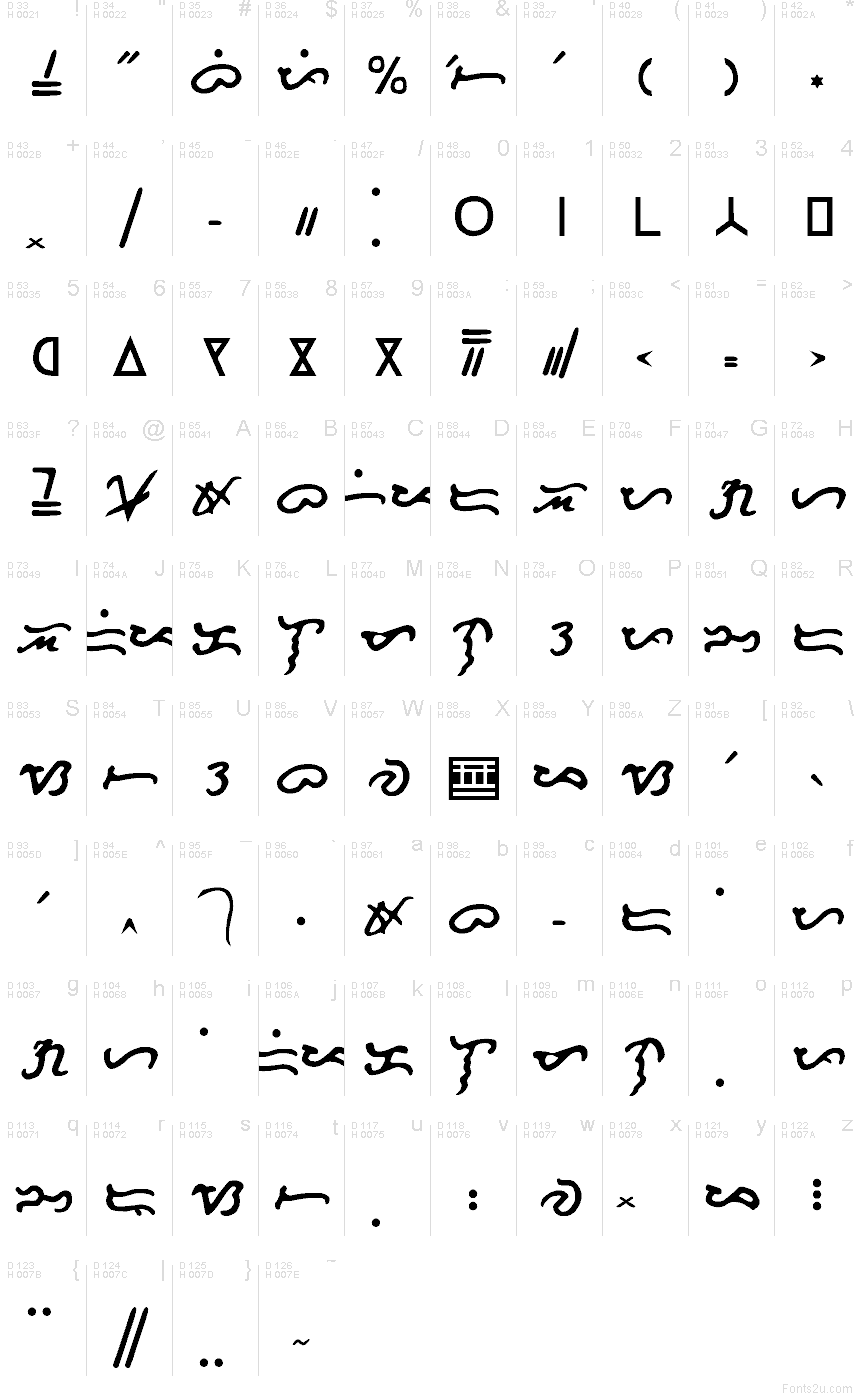 D 33 ! D 34 " D 35 # D 36 $ D 37 % D 38 & D 39 ' D 40 ( D 41 ) D 42 *
H 0021 H 0022 H 0023 H 0024 H 0025 H 0026 H 0027 H 0028 H 0029 H 002A
″ ᜊᜒ ᜉᜒ % ′ᜆ ′ ( ) *
D 43 + D 44 , D 45 - D 46 . D 47 / D 48 0 D 49 1 D 50 2 D 51 3 D 52 4
H 002B H 002C H 002D H 002E H 002F H 0030 H 0031 H 0032 H 0033 H 0034
x / - // : O I L ⅄
D 53 5 D 54 6 D 55 7 D 56 8 D 57 9 D 58 : D 59 ; D 60 < D 61 = D 62 >
H 0035 H 0036 H 0037 H 0038 H 0039 H 003A H 003B H 003C H 003D H 003E
< = >
D 63 ? D 64 @ D 65 A D 66 B D 67 C D 68 D D 69 E D 70 F D 71 G D 72 H
H 003F H 0040 H 0041 H 0042 H 0043 H 0044 H 0045 H 0046 H 0047 H 0048
ᜀ ᜊ ᜇ ᜁ ᜉ ᜄ ᜑ
D 73 I D 74 J D 75 K D 76 L D 77 M D 78 N D 79 O D 80 P D 81 Q D 82 R
H 0049 H 004A H 004B H 004C H 004D H 004E H 004F H 0050 H 0051 H 0052
ᜁ ᜃ ᜎ ᜋ ᜈ ᜂ ᜉ ᜅ ᜇ
D 83 S D 84 T D 85 U D 86 V D 87 W D 88 X D 89 Y D 90 Z D 91 [ D 92 \
H 0053 H 0054 H 0055 H 0056 H 0057 H 0058 H 0059 H 005A H 005B H 005C
ᜐ ᜆ ᜂ ᜊ ᜏ ᜌ ᜐ ′ ‵
D 93 ] D 94 ^ D 95 _ D 96 ` D 97 a D 98 b D 99 c D 100 d D 101 e D 102 f
H 005D H 005E H 005F H 0060 H 0061 H 0062 H 0063 H 0064 H 0065 H 0066
′ ^ · ᜀ ᜊ - ᜇ ˙ ᜉ
D 103 g D 104 h D 105 i D 106 j D 107 k D 108 l D 109 m D 110 n D 111 o D 112 p
H 0067 H 0068 H 0069 H 006A H 006B H 006C H 006D H 006E H 006F H 0070
ᜄ ᜑ ˙ ᜃ ᜎ ᜋ ᜈ . ᜉ
D 113 q D 114 r D 115 s D 116 t D 117 u D 118 v D 119 w D 120 x D 121 y D 122 z
H 0071 H 0072 H 0073 H 0074 H 0075 H 0076 H 0077 H 0078 H 0079 H 007A
ᜅ ᜇ ᜐ ᜆ . : ᜏ x ᜌ ⋮
D 123 { D 124 | D 125 } D 126 ~
H 007B H 007C H 007D H 007E
¨ // .. ~
Fonts2u.com